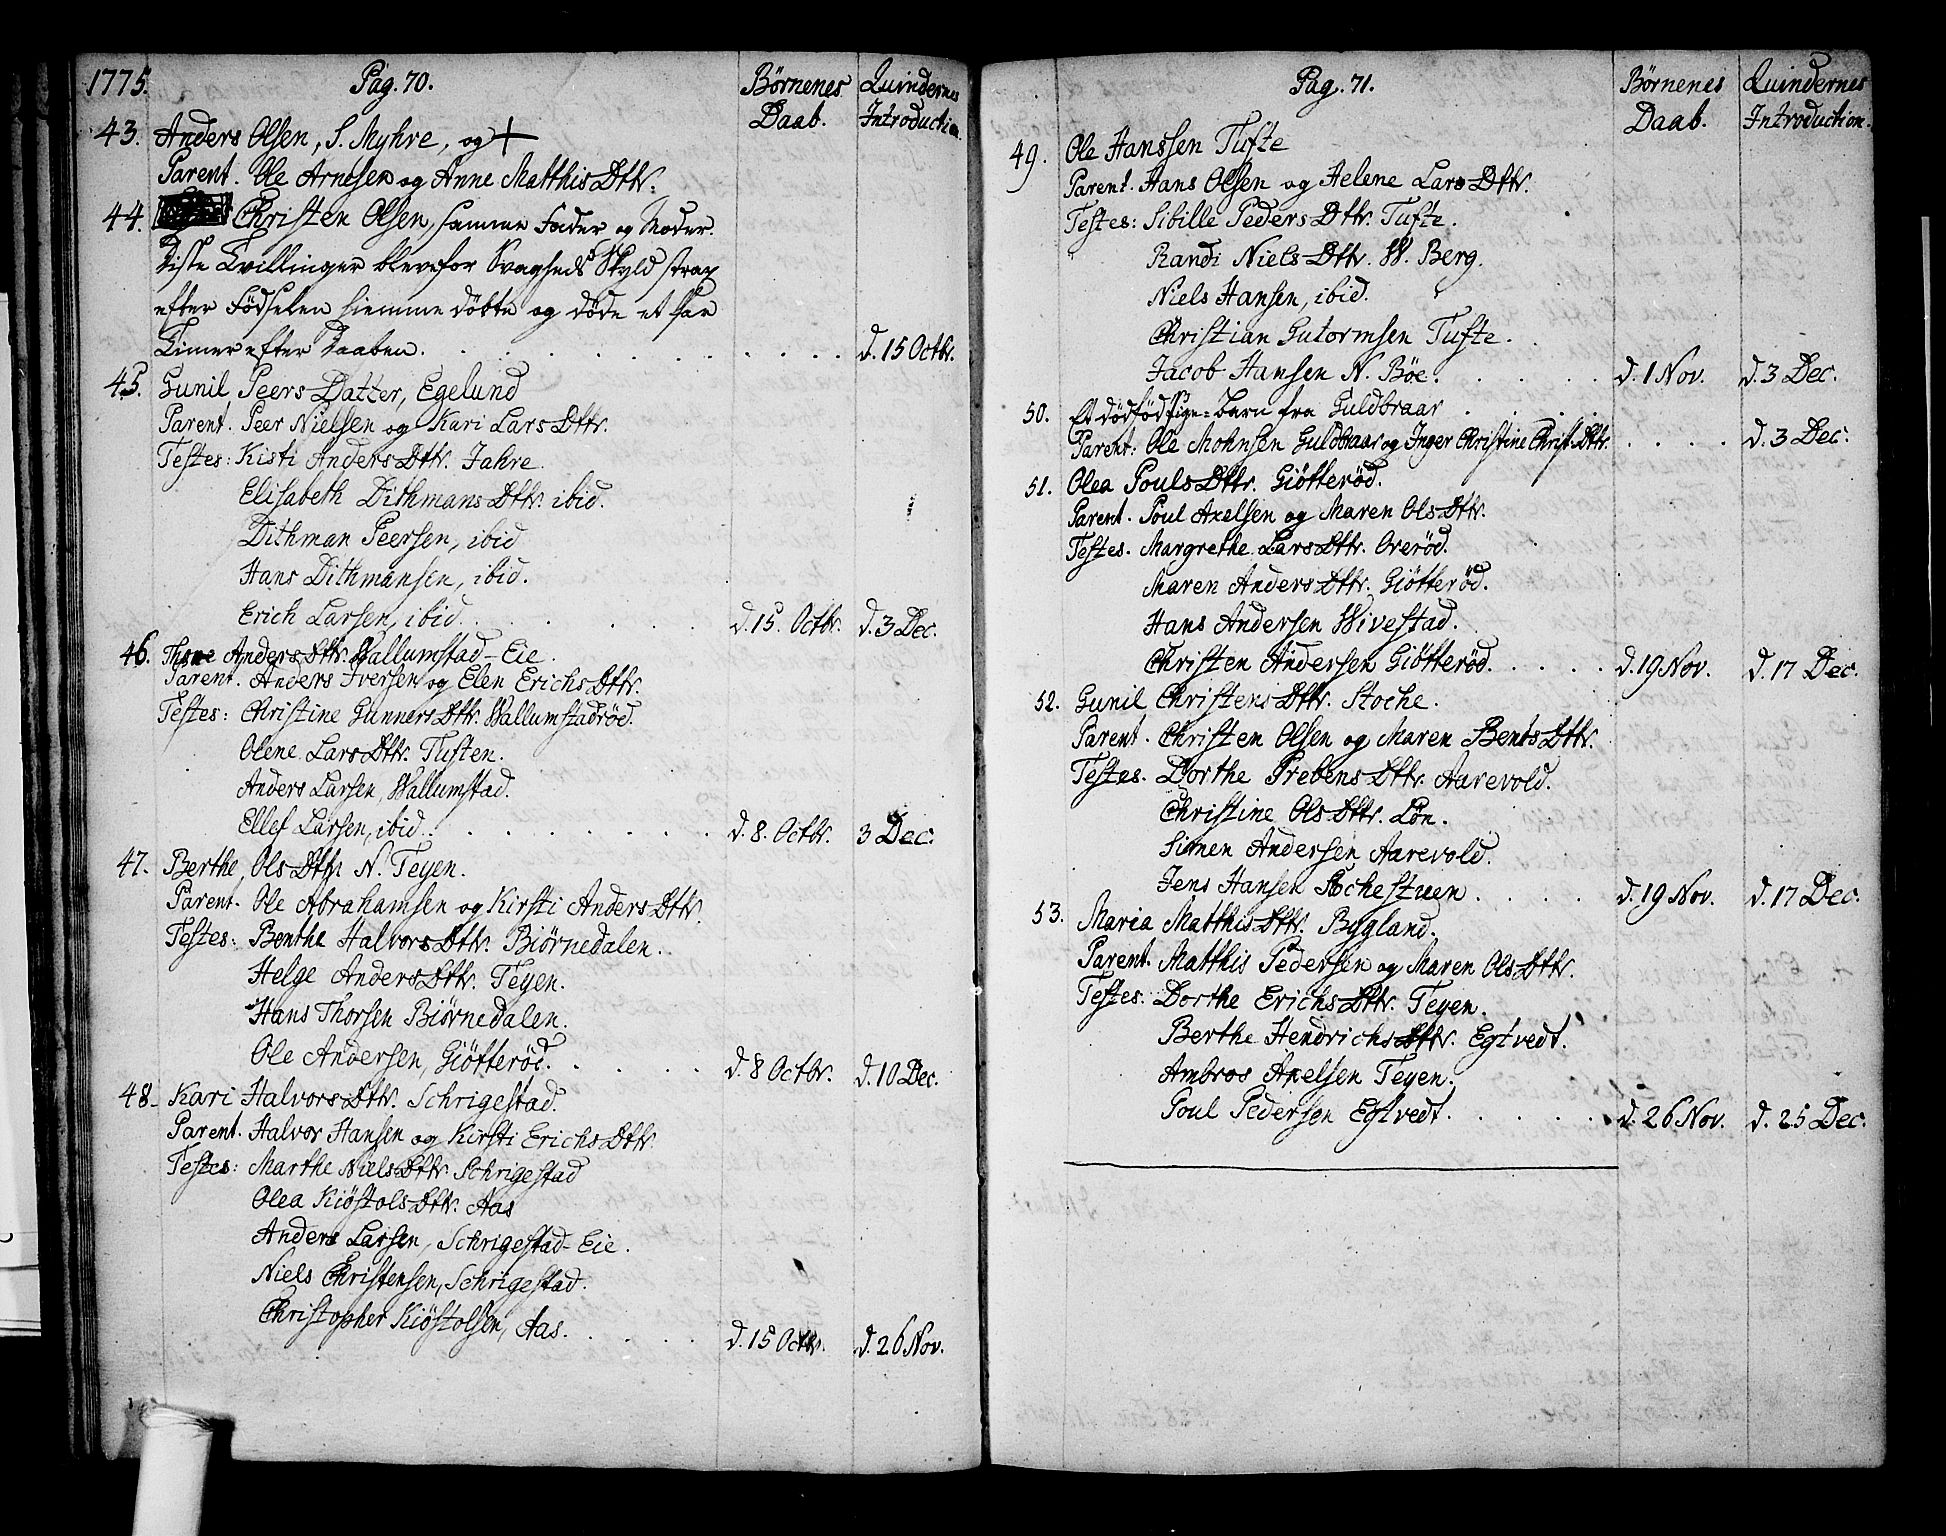 1775. Pag. 70. Børnenes Daab. Quindernes Introduction.
43. Anders Olsen, S. Myhre, og +
Parent. Ole Arnesen og Anne Matthis Dttr.
44. Christen Olsen, samme Fader og Moder.
Disse Tvillinger bleve for Svagheds Skyld strax
efter Fødselen hiemme døbte og døde et Par
Timer efter Daaben. d. 15 Octbr.
45. Gunil Peers Datter, Egelund
Parent. Peer Nielsen og Kari Lars Dttr.
Testes: Kisti Anders Dttr. Jahre.
Elisabeth Dithmans Dttr. ibid.
Dithman Peersen, ibid
Hans Dithmansen, ibid.
Erich Larsen, ibid. d. 15. Octbr. d. 3 Dec.
46. Anders Dttr. Wallumstad-Eie.
Parent. Anders Iversen og Elen Erichs Dttr.
Testes: Christine Gunners Dttr. Wallumstadrød.
Olene Lars Dttr. Tuften.
Anders Larsen, Wallumstad.
Ellef Larsen, ibid. d. 8. Octbr. 3 Dec.
47. Berthe, Ols Dttr. N. Teyen.
Parent. Ole Abrahamsen og Kirsti Anders Dttr.
Testes: Benthe Halvors Dttr. Biörnedalen.
Helge Anders Dttr. Teyen.
Hans Thorsen Biörnedalen.
Ole Andersen, Giötteröd. d. 8 Octbr. d. 10 Dec.
48. Kari Halvors Dttr. Schrigestad.
Parent. Halvor Hansen og Kirsti Erichs Dttr
Testes: Marthe Niels Dttr. Schrigestad
Olea Kiöstols Dttr. Aas
Anders Larsen, Schrigestad-Eie.
Niels Christensen, Schrigestad.
Christopher Kiöstolsen, Aas. d. 15 Octbr. d. 26 Nov.
Pag. 71. Børnenes Daab. Quindernes Introduction.
49. Ole Hanssen Tufte
Parent. Hans Olsen og Helene Lars Dttr.
Testes: Sibille Peders Dttr. Tufte.
Randi Niels Dttr. W. Berg.
Niels Hansen, ibid.
Christian Gutormsen Tufte.
Jacob Hansen N. Böe. d. 1 Nov. d. 3 Dec.
50. Et dödfödt Pige-Barn fra Guldbraar
Parent: Ole Mohnsen Guldbraar og Inger Christine Christ. Dttr. d. 3 Dec:
51. Olea Pouls Dttr. Giötteröd.
Parent. Poul Axelsen og Maren Ols Dttr.
Testes. Margrethe Lars Dttr. Overöd.
Maren Anders Dttr. Giötteröd.
Hans Andersen Wivestad.
Christen Andersen Giötteröd. d. 19 Nov. d. 17 Dec.
52. Gunil Christens Dttr. Stoche.
Parent. Christen Olsen og Maren Bents Dttr.
Testes. Dorthe Prebens Dttr. Aarevold.
Christine Ols Dttr. Lön.
Simen Andersen Aarevold.
Jens Hansen d. 19 Nov. d. 17 Dec:
53. Maria Matthis Dttr. Bygland.
Parent. Matthis Pedersen og Maren Ols Dttr.
Testes: Dorthe Erichs Dttr. Teyen.
Berthe Hendrichs Dttr. Egtvedt.
Ambros Axelsen Teyen.
Poul Pedersen Egtvedt. d. 26 Nov. d. 25 Dec.